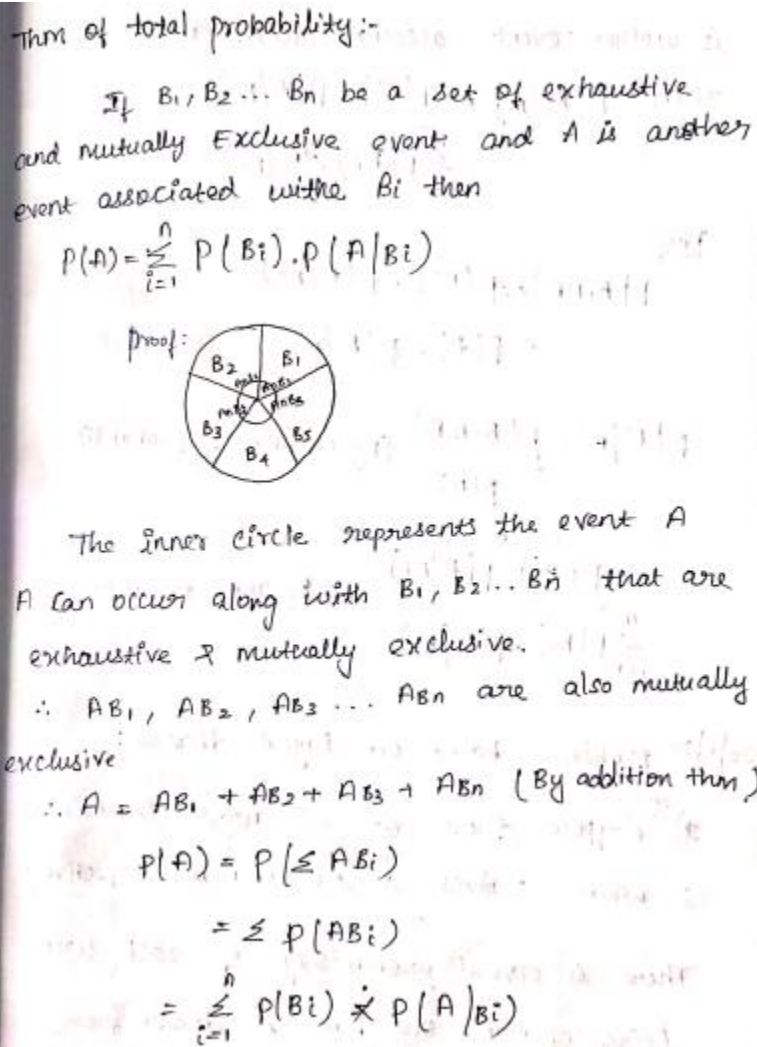 Thm of total probability:-
If B₁, B₂ ... Bn be a set of exhaustive
and mutually Exclusive event and A is another
event associated withe Bi then
P(A) = n∑i=1 P(Bi).P(A|Bi)
Proof:
B₂ B₁
A∩B₁
A∩B₅
B₃ B₅
B₄
The inner circle represents the event A
A can occur along with B₁, B₂... Bn that are
exhaustive & mutually exclusive.
∴ AB₁, AB₂, AB₃ ... ABn are also mutually
exclusive
∴ A = AB₁ + AB₂ + AB₃ + ABn (By addition thm)
P(A) = P(∑ABi)
= ∑ P(ABi)
= n∑i=1 P(Bi) × P(A/Bi)